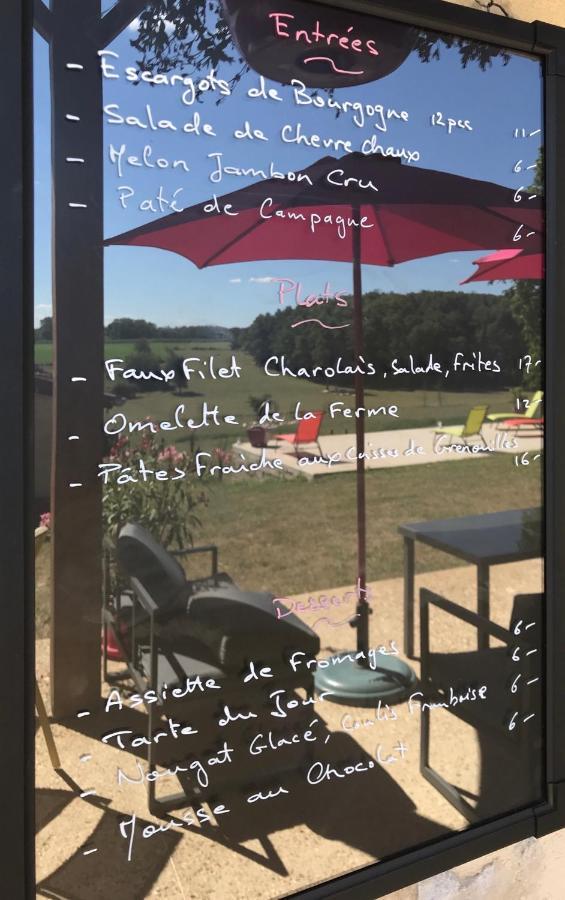 Entrées
- Escargots de Bourgogne 12pcs 11-
- Salade de Chevre chaux 6-
- Melon Jambon Cru 6-
- Paté de Campagne 6-
Plats
- Faux Filet Charolais, salade, frites 17-
- Omelette de la Ferme 12-
- Pâtes Fraiche aux Cuisses de Grenouilles 16-
Desserts
- Assiette de Fromages 6-
- Tarte du Jour 6-
- Nougat Glacé, Coulis Framboise 6-
- Mousse au Chocolat 6-